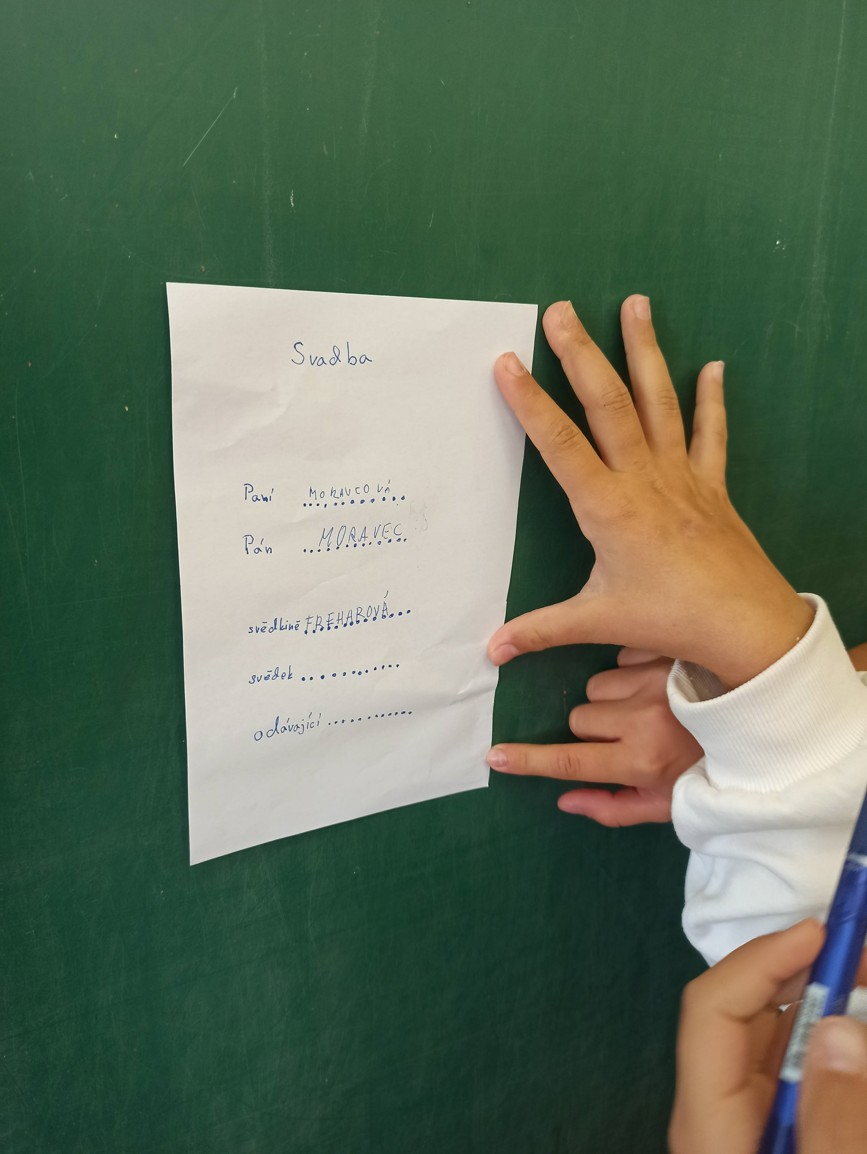 Svadba
Paní MORAVCOVÁ
Pán MORAVEC
svědkině FREHAROVÁ
svědek ............
odávající ............